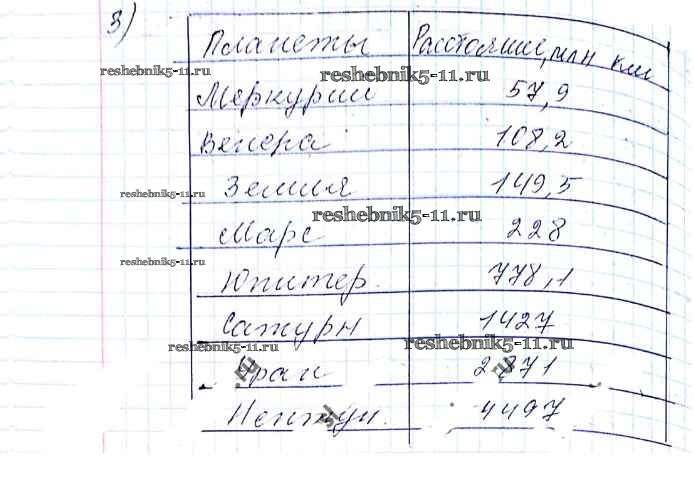 3)
Планеты Расстояние, млн км
reshebnik5-11.ru reshebnik5-11.ru
Меркурий 57,9
Венера 108,2
reshebnik5-11.ru
Земля 149,5
reshebnik5-11.ru
Марс 228
reshebnik5-11.ru
Юпитер 778,1
Сатурн 1427
reshebnik5-11.ru reshebnik5-11.ru
Уран 2871
Нептун 4497